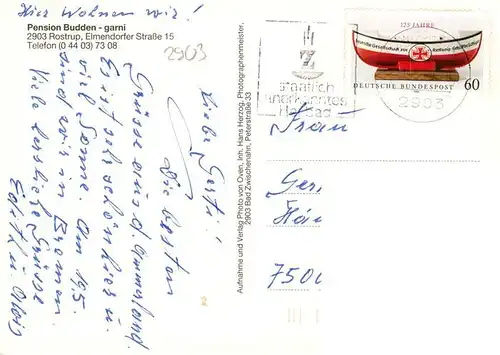 Hier wohnen wir!
Pension Budden - garni
2903 Rostrup, Elmendorfer Straße 15
Telefon (0 44 03) 73 08
2903
Liebe Gerti!
Die besten
Grüsse aus d. Ammerland.
Es ist sehr schön hier u.
viel Sonne. Am 19.5.
sind wir in Bremen.
Viele herzliche Grüsse
Edith u. Alois
Aufnahme und Verlag Photo von Oven, Inh. Hans Herzog, Photographenmeister,
2903 Bad Zwischenahn, Peterstraße 33
staatlich
anerkanntes
Heilbad
2903
125 JAHRE
Deutsche Gesellschaft zur Rettung Schiffbrüchiger
DEUTSCHE BUNDESPOST
60
Frau
Ger
7500